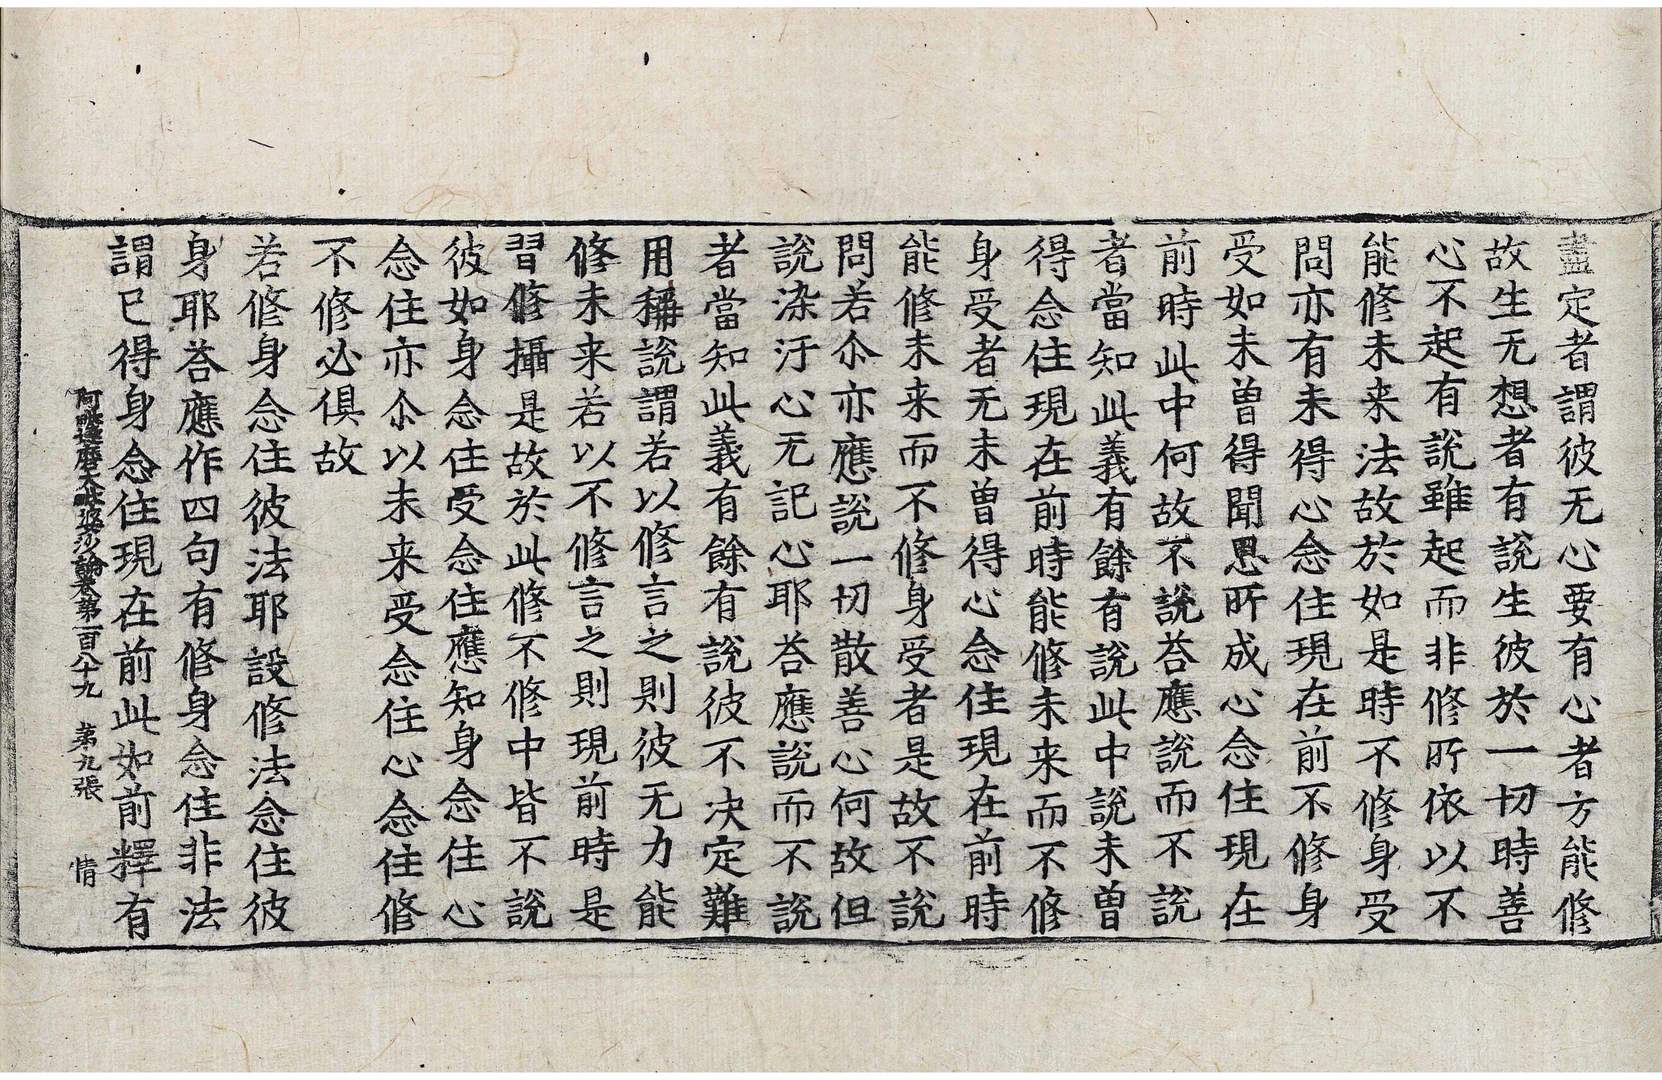 盡定者謂彼无心要有心者方能修
故生无想者有說生彼於一切時善
心不起有說雖起而非修所依以不
能修未来法故於如是時不修身受
問亦有未得心念住現在前不修身
受如未曾得聞思所成心念住現在
前時此中何故不說荅應說而不說
者當知此義有餘有說此中說未曾
得念住現在前時能修未来而不修
身受者无未曾得心念住現在前時
能修未来而不修身受者是故不說
問若尒亦應說一切散善心何故但
說染汙心无記心耶荅應說而不說
者當知此義有餘有說彼不决定難
用稱說謂若以修言之則彼无力能
修未来若以不修言之則現前時是
習修攝是故於此修不修中皆不說
彼如身念住受念住應知身念住心
念住亦尒以未来受念住心念住修
不修必俱故
若修身念住彼法耶設修法念住彼
身耶荅應作四句有修身念住非法
謂已得身念住現在前此如前釋有
阿毗達磨大毗婆沙論卷第一百八十九　第九張　情